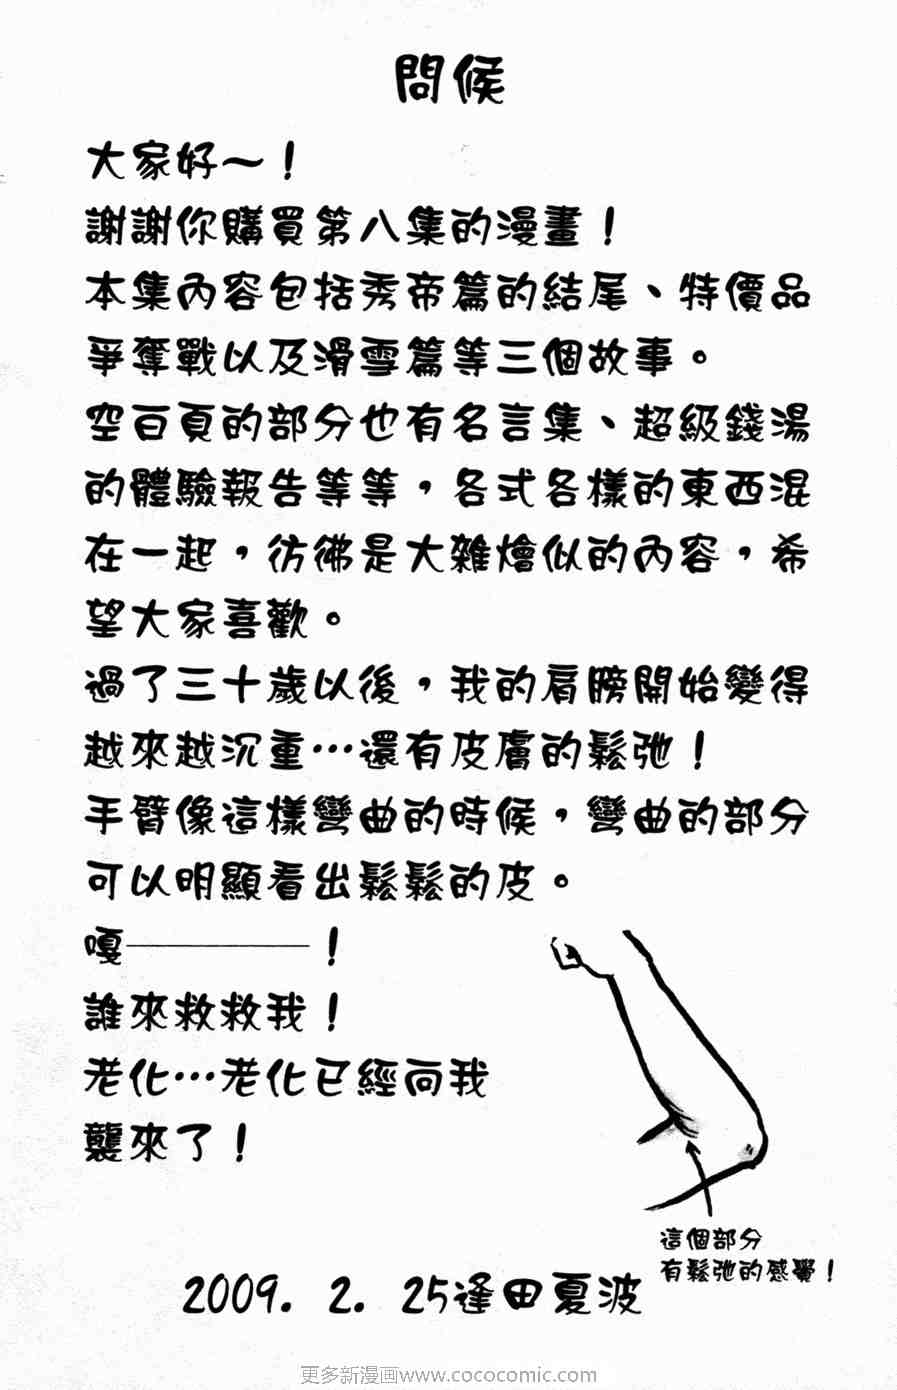 問候
大家好～！
謝謝你購買第八集的漫畫！
本集內容包括秀帝篇的結尾、特價品
爭奪戰以及滑雪篇等三個故事。
空白頁的部分也有名言集、超級錢湯
的體驗報告等等，各式各樣的東西混
在一起，彷彿是大雜燴似的內容，希
望大家喜歡。
過了三十歲以後，我的肩膀開始變得
越來越沉重…還有皮膚的鬆弛！
手臂像這樣彎曲的時候，彎曲的部分
可以明顯看出鬆鬆的皮。
嘎————！
誰來救救我！
老化…老化已經向我
襲來了！
這個部分
有鬆弛的感覺！
2009. 2. 25逢田夏波
更多新漫画www.cococomic.com